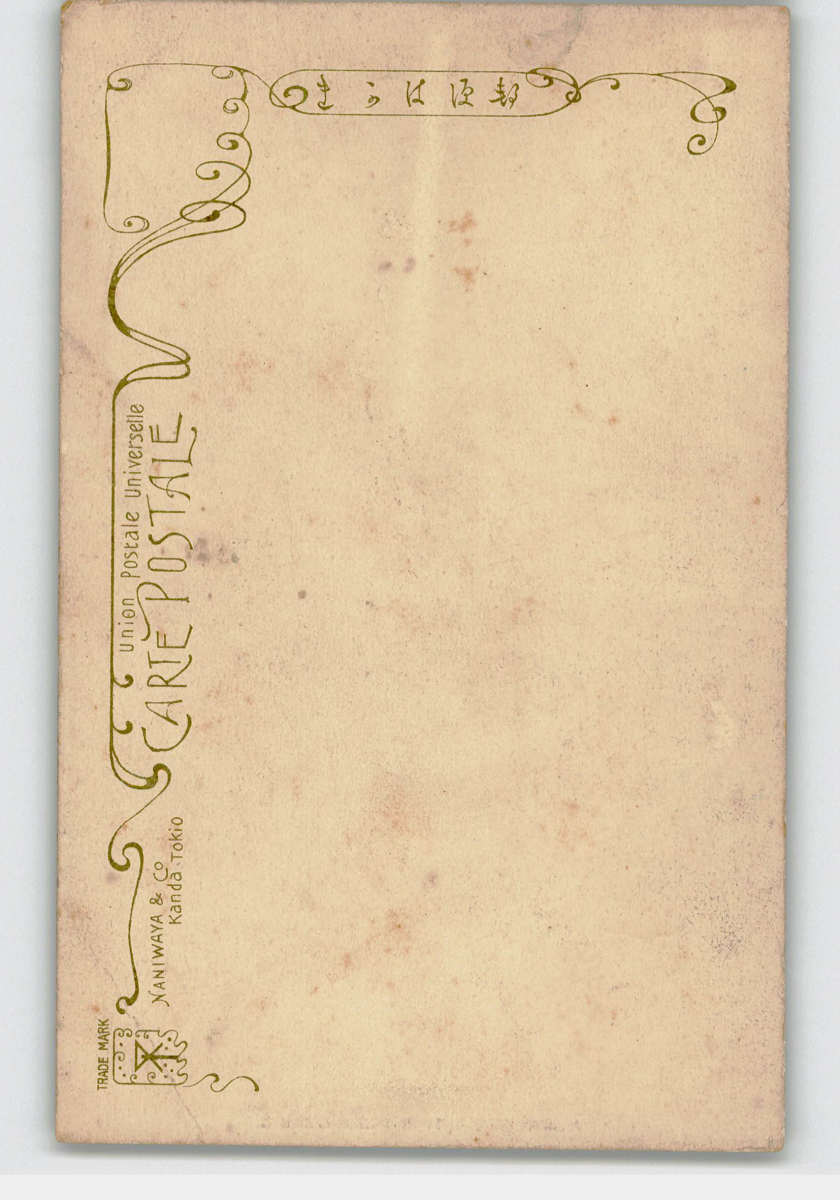 郵便はかき
Union Postale Universelle
CARTE POSTALE
NANIWAYA & Co
Kanda·Tokio
TRADE MARK